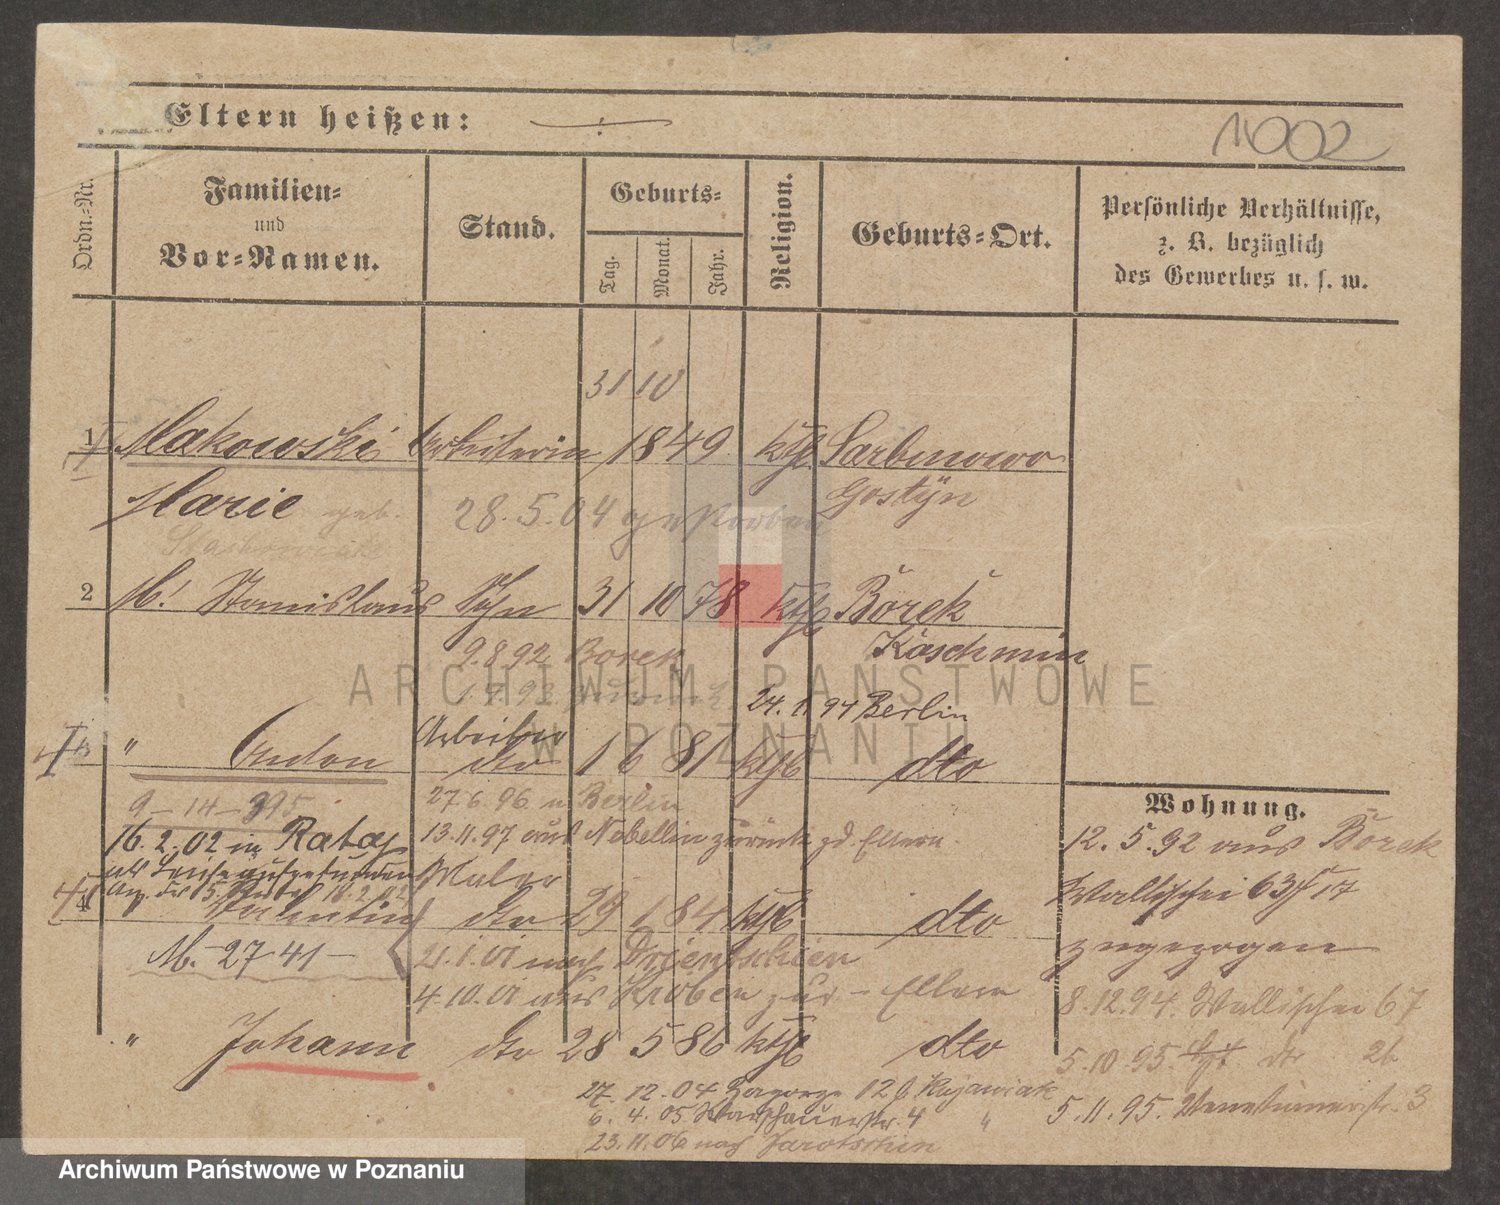 Eltern heißen:
14002
Ordn.=Nr.
Familien=
und
Vor=Namen.
Stand.
Geburts=
Tag.
Monat.
Jahr.
Religion.
Geburts=Ort.
Persönliche Verhältnisse,
z. B. bezüglich
des Gewerbes u. s. w.
31 10
1 Makowski Arbeiterin 1849 kth Sarbinowo
Marie geb. Gostyn
28.5.04 gestorben
2 M. Stanislaus Sohn 31 10 78 kth Borek
Koschmin
9.8.92 Borek
24. 11. 94 Berlin
Arbeiter
3 " Anton dto 1 6 81 kth dto
27.6.96 n Berlin
9-14-395
13.11.97 aus Nebellin zurück zd. Eltern.
16.2.02 in Rataj
als Leiche aufgefunden
Maler
4 Valentin dto 29 1 84 kth dto
M. 27 41 -
21.1.01 nach
4.10.01 aus Kröben zur - Eltern
" Johann dto 28 5 86 kth dto
27. 12. 04 Zagorze 12 b Kujawiak
6. 4. 05 Warschauerstr. 4 "
23.11.06 nach Jarotschin
Wohnung.
12. 5. 92 aus Borek
Wallischei 63 17
zugezogen
8.12.94. Wallischei 67
5.10.95. dto 26
5.11.95. Venetianerstr. 3
ARCHIWUM PAŃSTWOWE
W POZNANIU
Archiwum Państwowe w Poznaniu